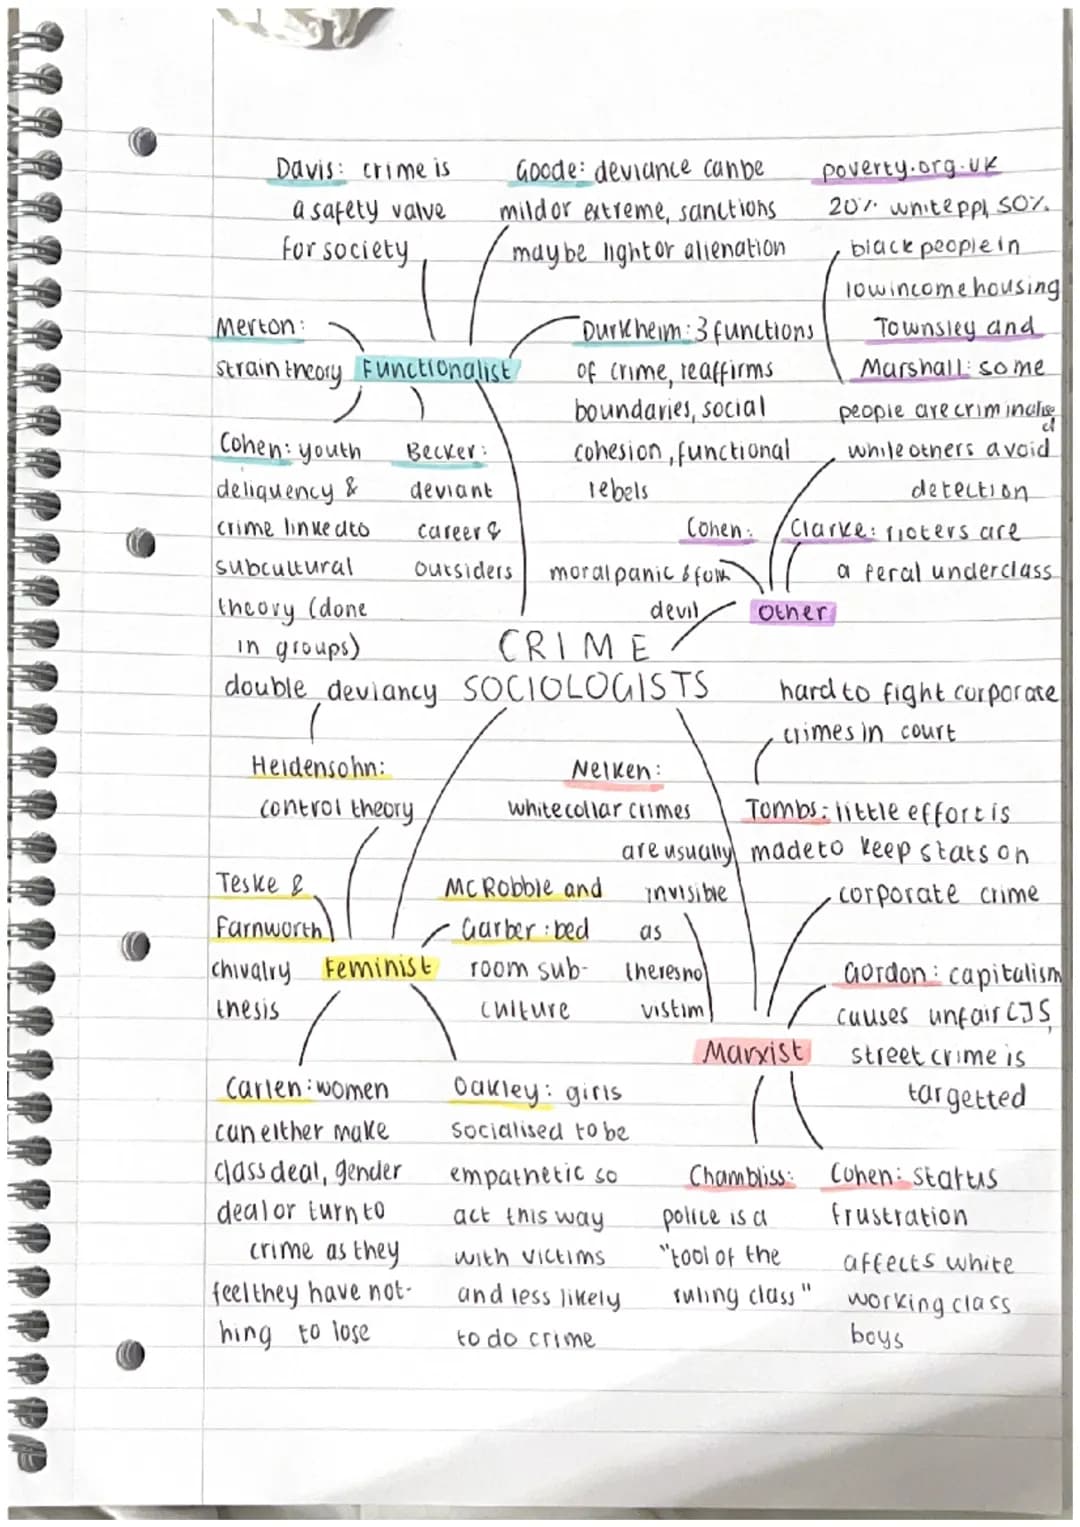 Davis: crime is
a safety valve
for society
Goode: deviance can be
mild or extreme, sanctions
may be light or alienation
poverty.org.uk
20% white ppl, 50%
black people in
low income housing
Townsley and
Marshall: some
people are criminalised
while others avoid
detection
Merton:
strain theory
Functionalist
Durkheim: 3 functions
of crime, reaffirms
boundaries, social
cohesion, functional
rebels
Cohen: youth
deliquency &
crime linked to
subcultural
theory (done
in groups)
Becker:
deviant
career &
outsiders
Cohen:
moral panic & folk
devil
Clarke: rioters are
a feral underclass
Other
CRIME
SOCIOLOGISTS
double deviancy
Heidensohn:
control theory
Teske &
Farnworth
chivalry
thesis
Feminist
McRobbie and
Garber: bed
room sub-
culture
Carlen: women
can either make
class deal, gender
deal or turn to
crime as they
feel they have not-
hing to lose
Oakley: girls
socialised to be
empathetic so
act this way
with victims
and less likely
to do crime
Nelken:
white collar crimes
are usually
invisible
as
theres no
vistim
hard to fight corporate
crimes in court
Tombs: little effort is
made to keep stats on
corporate crime
Gordon: capitalism
causes unfair CJS,
street crime is
targetted
Marxist
Chambliss:
police is a
"tool of the
ruling class"
Cohen: status
frustration
affects white
working class
boys